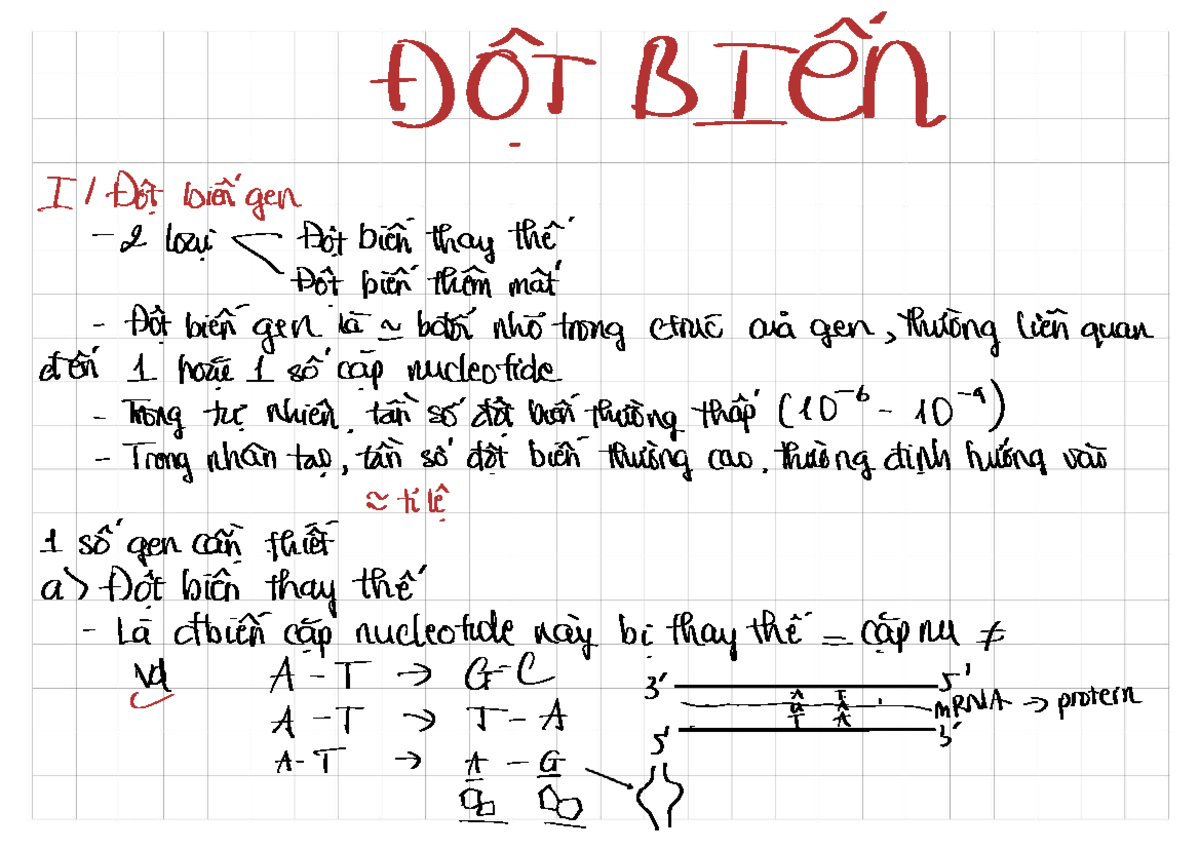 ĐỘT BIẾN
I / Đột biến gen
- 2 loại
Đột biến thay thế
Đột biến thêm mất
- Đột biến gen là ~ bđổi nhỏ trong ctrúc của gen, thường liên quan
đến 1 hoặc 1 số cặp nucleotide
- Trong tự nhiên, tần số đột biến thường thấp (10⁻⁶ - 10⁻⁴)
- Trong nhân tạo, tần số đột biến thường cao, thường định hướng vào
≈ tỉ lệ
1 số gen cần thiết
a) Đột biến thay thế
- Là đbiến cặp nucleotide này bị thay thế = cặp nu ≠
Vd A - T → G - C
A - T → T - A
A - T → A - G
3' 5'
A T
u A mRNA → protein
T A
5' 3'